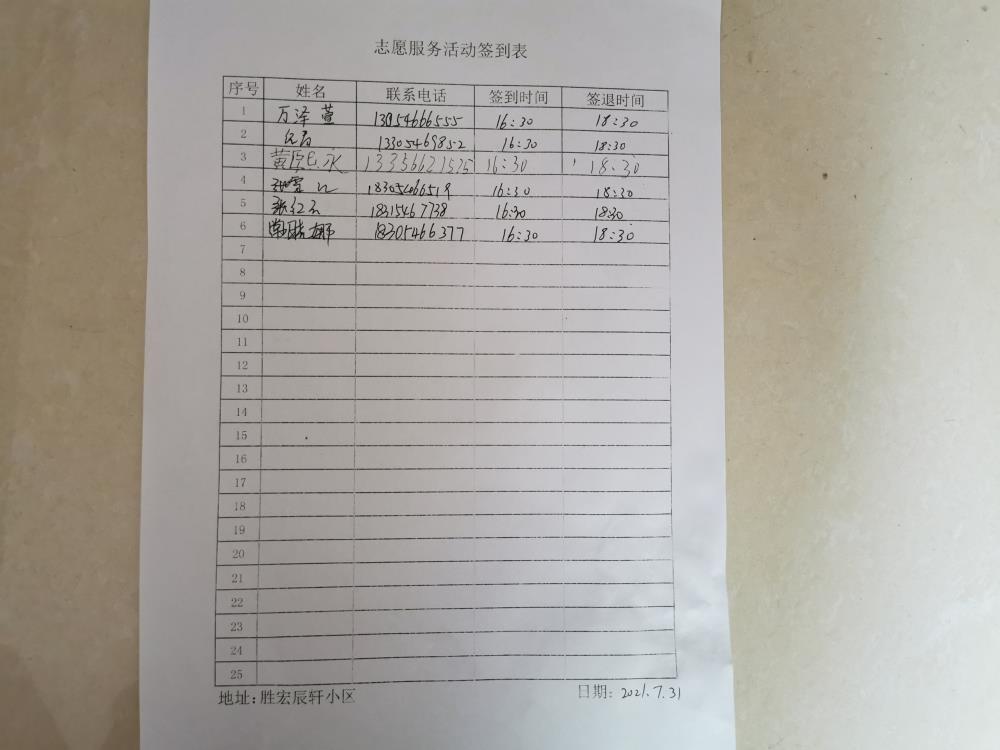 志愿服务活动签到表
序号 姓名 联系电话 签到时间 签退时间
1 万泽萱 13054666555 16:30 18:30
2 13305469852 16:30 18:30
3 13356621525 16:30 18:30
4 16:30 18:30
5 张红玉 18315467738 16:30 18:30
6 18305466377 16:30 18:30
7
8
9
10
11
12
13
14
15
16
17
18
19
20
21
22
23
24
25
地址:胜宏辰轩小区 日期: 2021.7.31